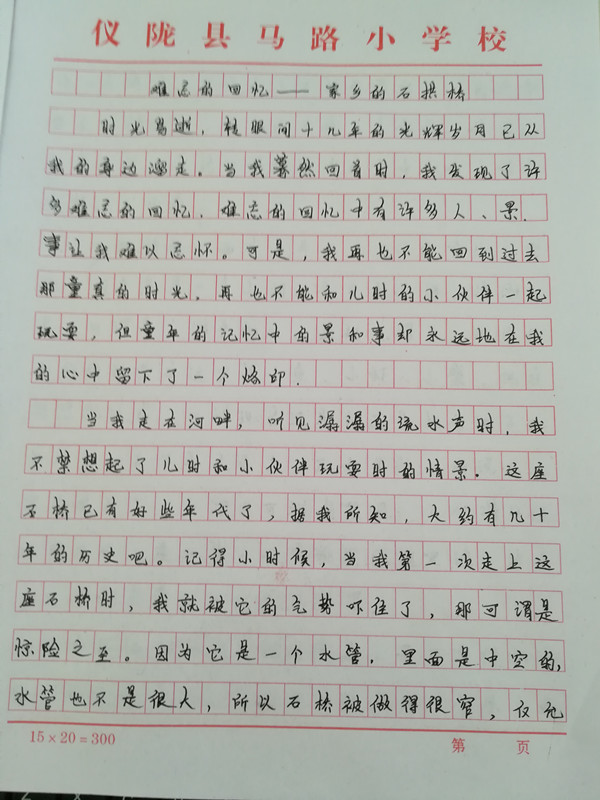 仪陇县马路小学校
难忘的回忆——家乡的石拱桥
时光易逝，转眼间十几年的光辉岁月已从
我的身边溜走。当我蓦然回首时，我发现了许
多难忘的回忆，难忘的回忆中有许多人、景、
事让我难以忘怀。可是，我再也不能回到过去
那童真的时光，再也不能和儿时的小伙伴一起
玩耍，但童年的记忆中的景和事却永远地在我
的心中留下了一个烙印．
当我走在河畔，听见潺潺的流水声时，我
不禁想起了儿时和小伙伴玩耍时的情景．这座
石桥已有好些年代了，据我所知，大约有几十
年的历史吧。记得小时候，当我第一次走上这
座石桥时，我就被它的气势吓住了，那可谓是
惊险之至。因为它是一个水管，里面是中空的，
水管也不是很大，所以石桥被做得很窄，仅允
15×20=300 第 页